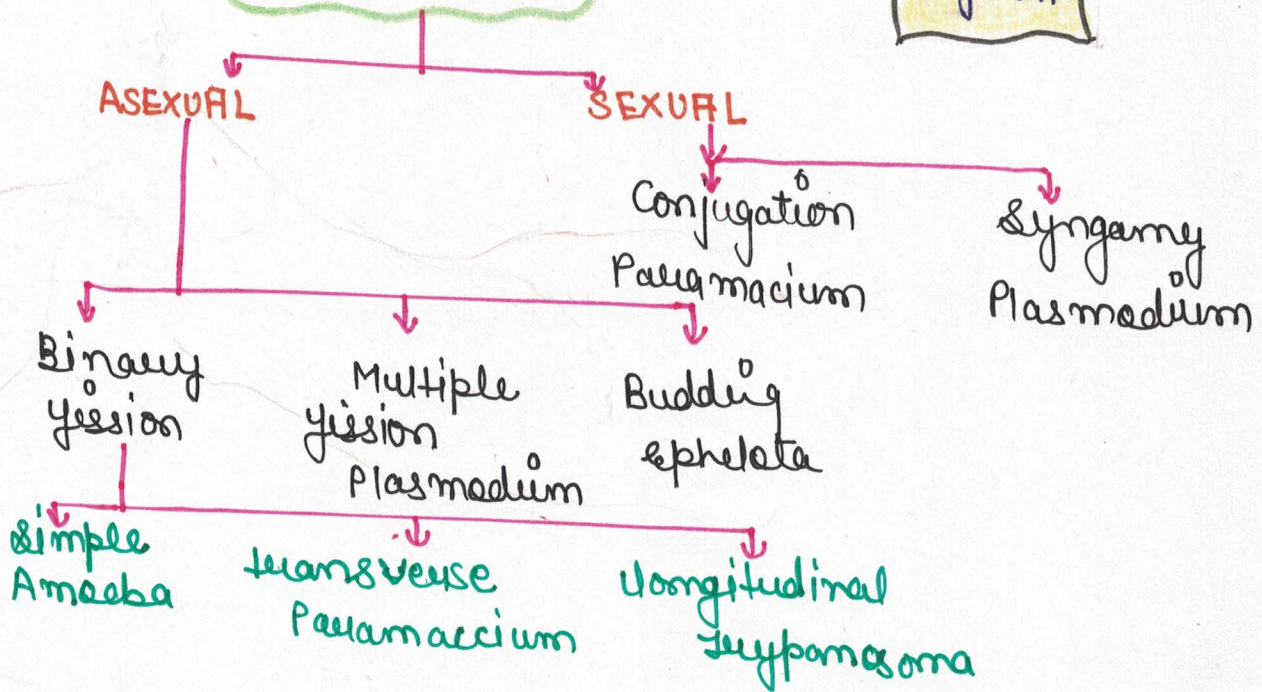 ASEXUAL
SEXUAL
Conjugation
Paramacium
Syngamy
Plasmodium
Binary
fission
Multiple
fission
Plasmodium
Budding
Ephelota
Simple
Amoeba
transverse
Paramaecium
longitudinal
Trypanosoma